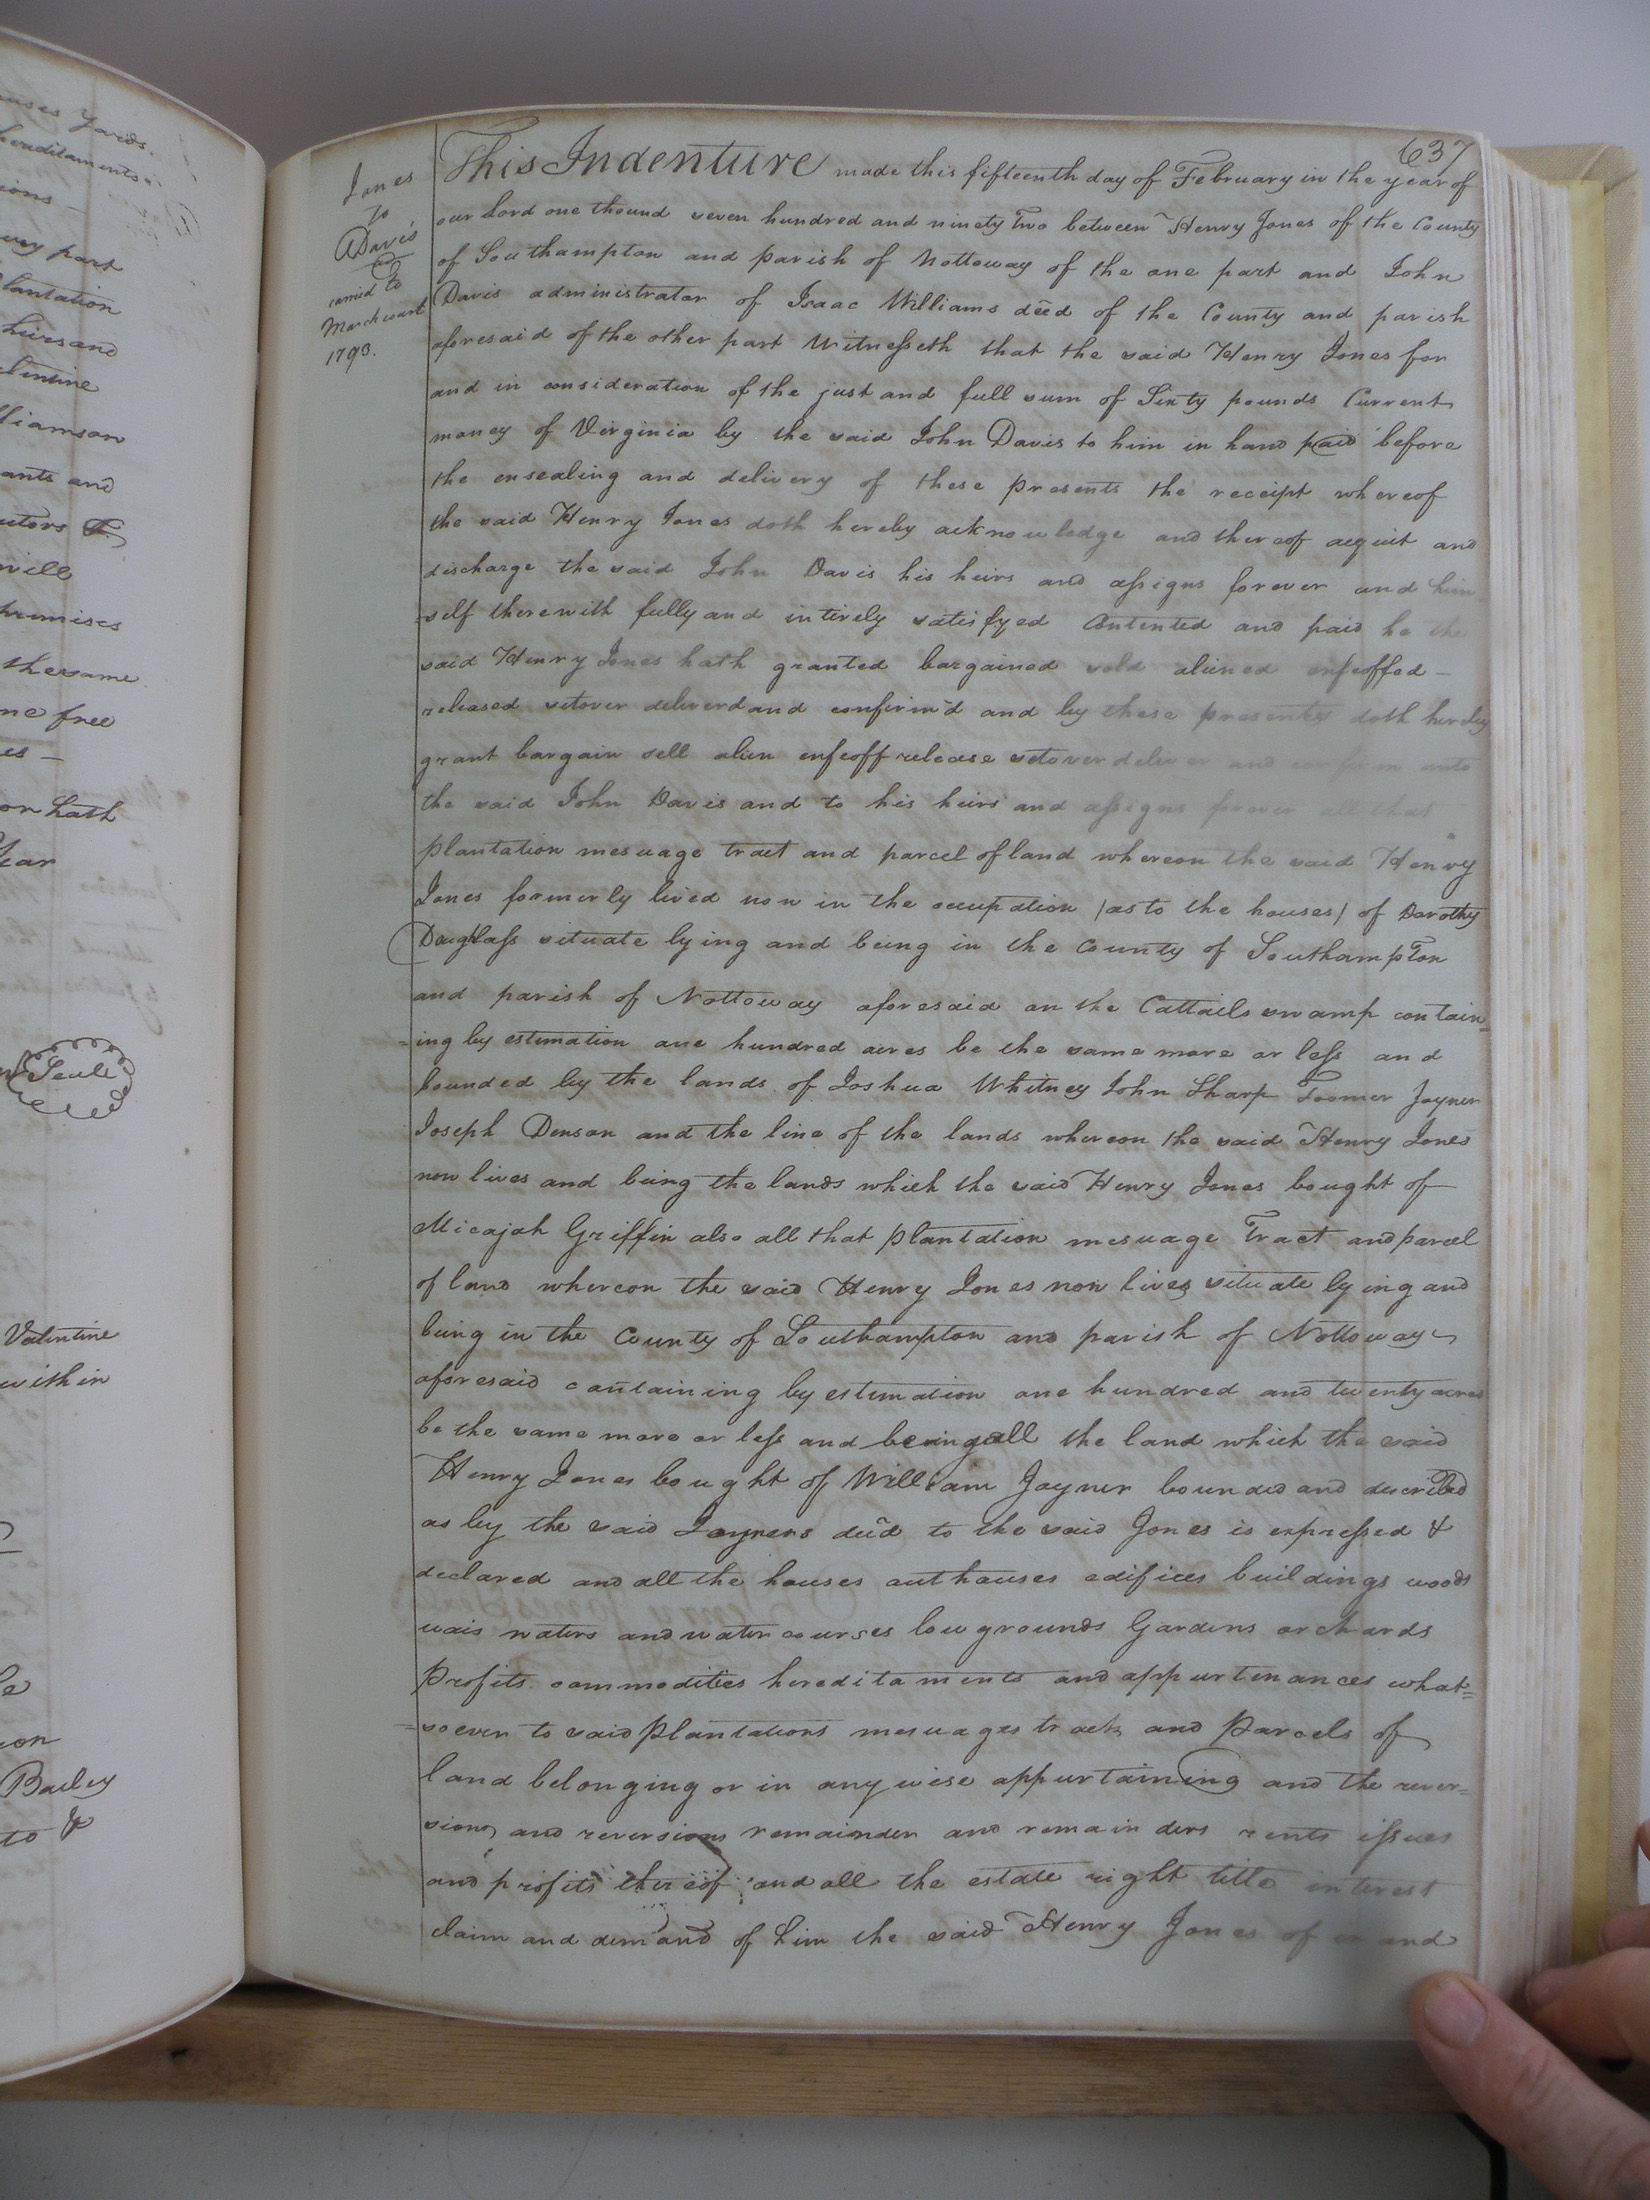 uses yards
hereditaments
ions
very part
plantation
heirs and
lentine
lliamson
ants and
utors &
will
premises
the same
me free
es
or hath
year
Seale
Valentine
within
on
Bailey
to &
637
Jones
To
Davis
carried to
March court
1793.
This Indenture made this fifteenth day of February in the year of
our Lord one thound seven hundred and ninety Two between Henry Jones of the County
of Southampton and parish of Nottoway of the one part and John
Davis administrator of Isaac Williams decd of the County and parish
aforesaid of the other part Witnesseth that the said Henry Jones for
and in consideration of the just and full sum of Sixty pounds Current
money of Virginia by the said John Davis to him in hand paid before
the ensealing and delivery of these presents the receipt whereof
the said Henry Jones doth hereby acknowledge and thereof acquit and
discharge the said John Davis his heirs and assigns forever and him
=self therewith fully and intirely satisfyed Contented and paid he the
said Henry Jones hath granted bargained sold aliened enfeoffed —
released setover deliverd and confirm'd and by these presents doth hereby
grant bargain sell alien enfeoff release setover deliver and confirm unto
the said John Davis and to his heirs and assigns forever all that
plantation mesuage tract and parcel of land whereon the said Henry
Jones formerly lived now in the occupation (as to the houses) of Dorothy
Douglass situate lying and being in the County of Southampton
and parish of Nottoway aforesaid on the Cattails swamp contain=
=ing by estimation one hundred acres be the same more or less and
bounded by the lands of Joshua Whitney John Sharp Toomer Joyner
Joseph Denson and the line of the lands whereon the said Henry Jones
now lives and being the lands which the said Henry Jones bought of
Micajah Griffin also all that plantation mesuage Tract and parcel
of land whereon the said Henry Jones now lives situate lying and
being in the County of Southampton and parish of Nottoway
aforesaid containing by estimation one hundred and twenty acres
be the same more or less and being all the land which the said
Henry Jones bought of William Joyner bounded and described
as by the said Joyners deed to the said Jones is expressed &
declared and all the houses outhouses edifices buildings woods
wais waters and water courses low grounds Gardens orchards
Profits commodities hereditaments and appurtenances what=
=soever to said plantations mesuages tracts and Parcels of
land belonging or in any wise appurtaining and the rever=
sions and reversions remainder and remainders rents issues
and profits thereof and all the estate right title interest
claim and demand of him the said Henry Jones of and